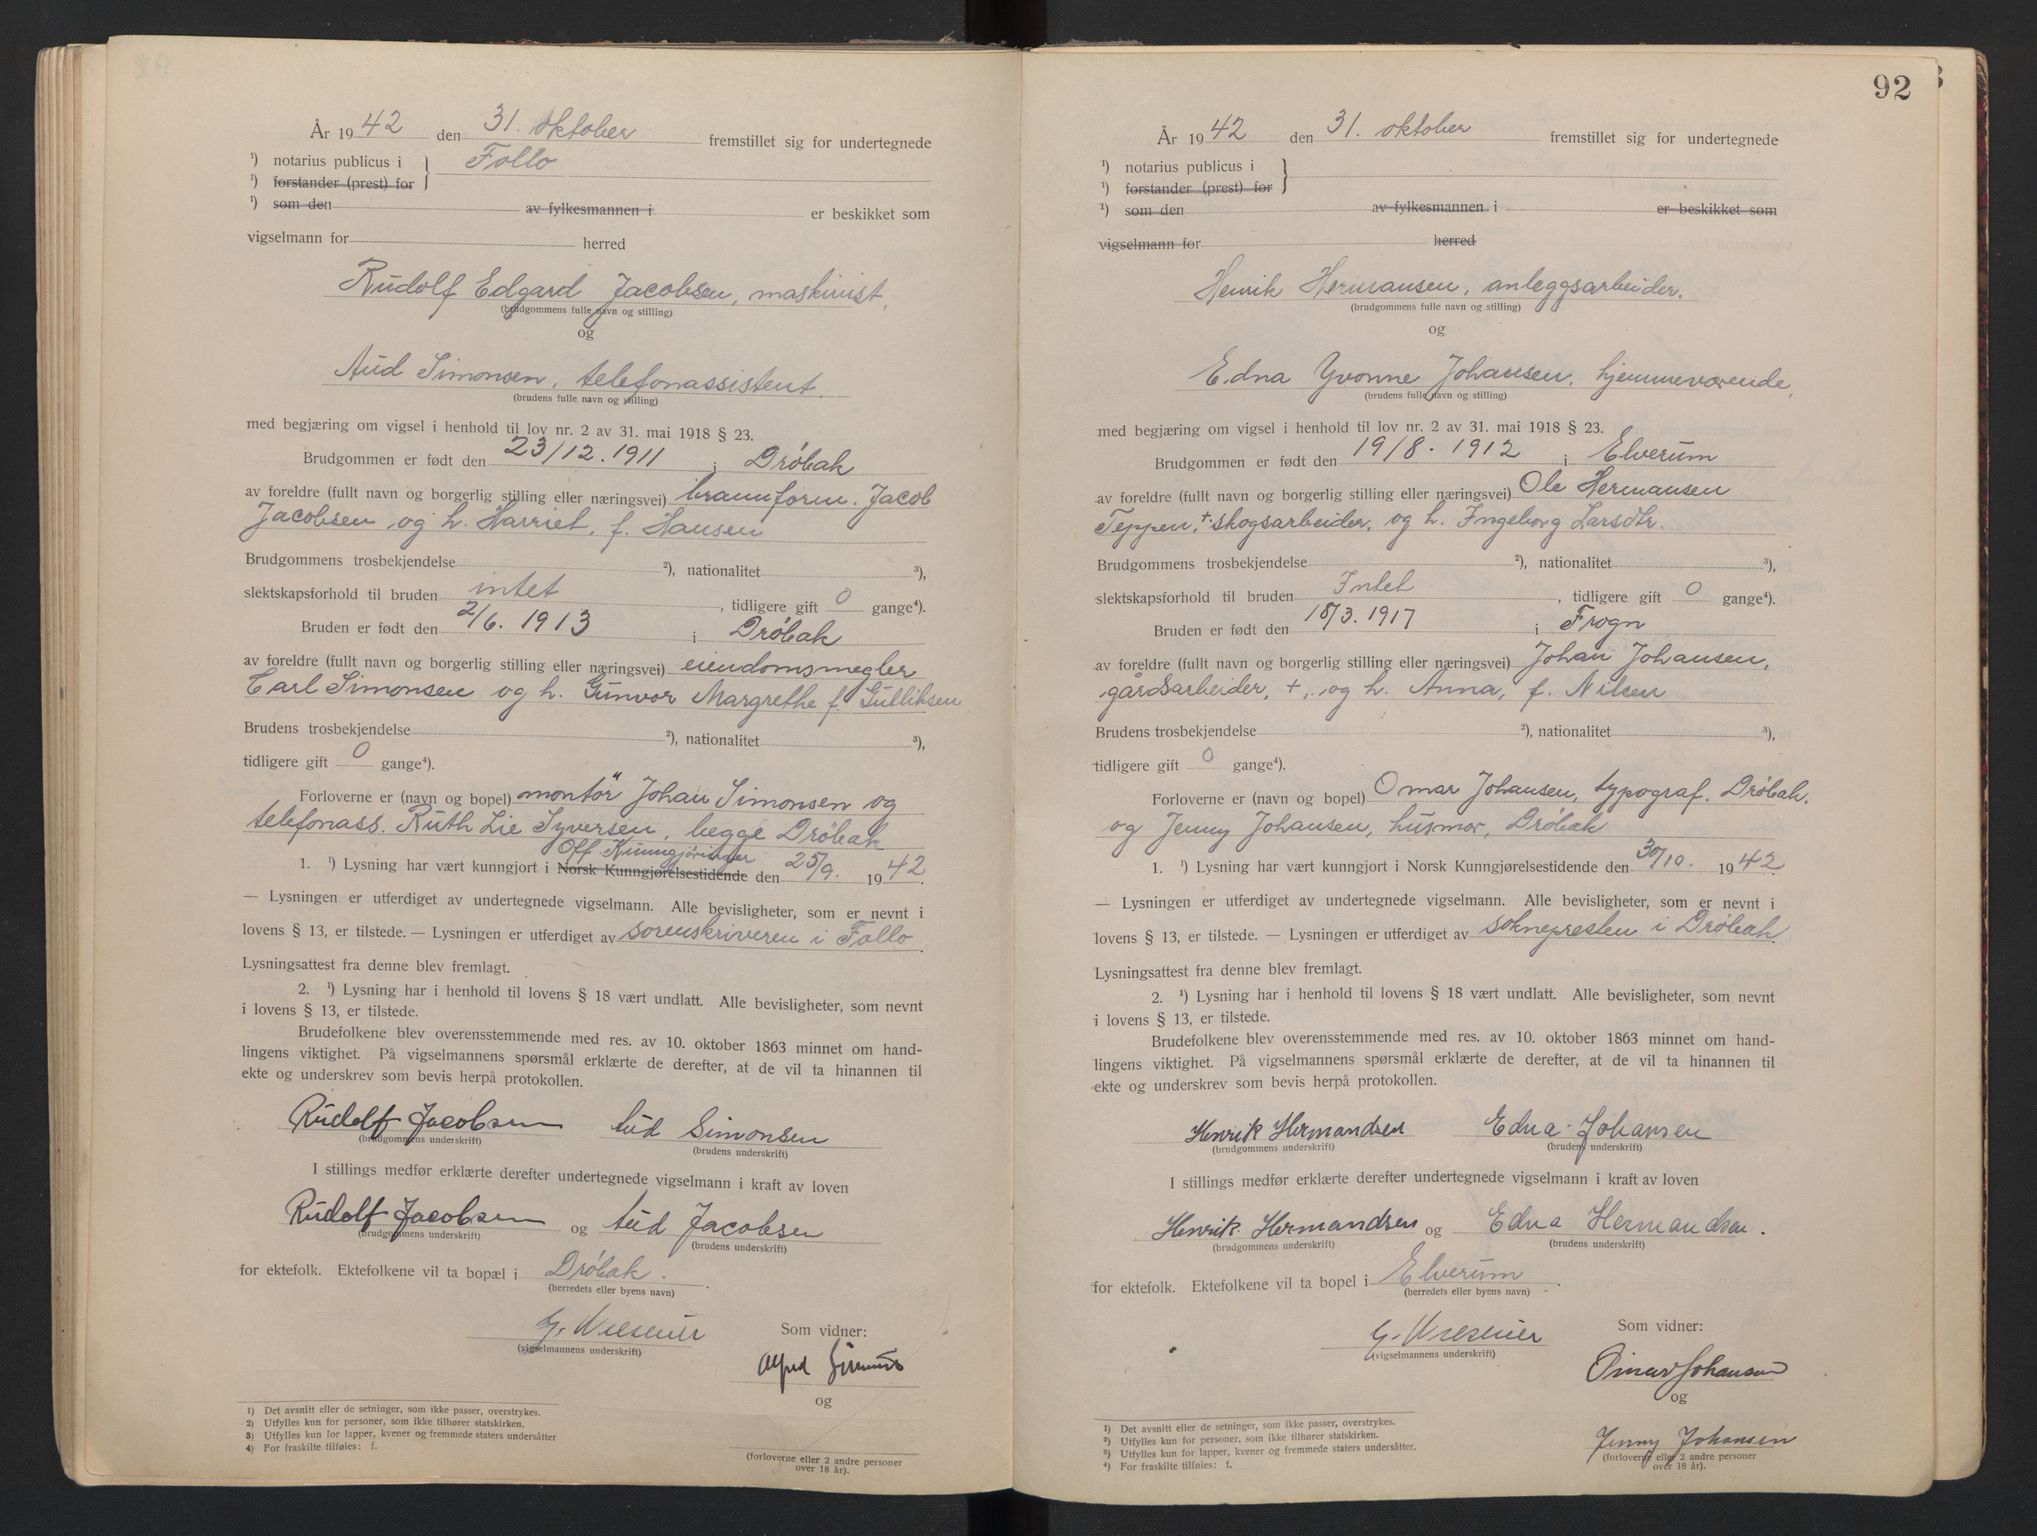 År 1942 den 31. oktober fremstillet sig for undertegnede
¹) notarius publicus i } Follo
¹) forstander (prest) for
¹) som den av fylkesmannen i er beskikket som
vigselmann for herred
Rudolf Edgard Jacobsen, maskinist,
(brudgommens fulle navn og stilling)
og
Aud Simonsen, telefonassistent.
(brudens fulle navn og stilling)
med begjæring om vigsel i henhold til lov nr. 2 av 31. mai 1918 § 23.
Brudgommen er født den 23/12. 1911 i Drøbak
av foreldre (fullt navn og borgerlig stilling eller næringsvei) brannform. Jacob
Jacobsen og h. Harriet, f. Hansen
Brudgommens trosbekjendelse ²), nationalitet ³),
slektskapsforhold til bruden intet, tidligere gift 0 gange⁴).
Bruden er født den 2/6. 1913 i Drøbak
av foreldre (fullt navn og borgerlig stilling eller næringsvei) eiendomsmegler
Carl Simonsen og h. Gunvor Margrethe f. Gulliksen
Brudens trosbekjendelse ²), nationalitet ³),
tidligere gift 0 gange⁴).
Forloverne er (navn og bopel) montör Johan Simonsen og
telefonass. Ruth Lie Syversen, begge Drøbak
Off. Kunngjøringer
1. ¹) Lysning har vært kunngjort i Norsk Kunngjørelsestidende den 25/9. 1942
— Lysningen er utferdiget av undertegnede vigselmann. Alle bevisligheter, som er nevnt i
lovens § 13, er tilstede. — Lysningen er utferdiget av sorenskriveren i Follo
Lysningsattest fra denne blev fremlagt.
2. ¹) Lysning har i henhold til lovens § 18 vært undlatt. Alle bevisligheter, som nevnt
i lovens § 13, er tilstede.
Brudefolkene blev overensstemmende med res. av 10. oktober 1863 minnet om hand-
lingens viktighet. På vigselmannens spørsmål erklærte de derefter, at de vil ta hinannen til
ekte og underskrev som bevis herpå protokollen.
Rudolf Jacobsen Aud Simonsen
(brudgommens underskrift) (brudens underskrift)
I stillings medfør erklærte derefter undertegnede vigselmann i kraft av loven
Rudolf Jacobsen og Aud Jacobsen
(brudgommens underskrift) (brudens underskrift)
for ektefolk. Ektefolkene vil ta bopæl i Drøbak.
(herredets eller byens navn)
G. Wiesener Som vidner:
(vigselmannens underskrift)
Alfred
og
(forloverne eller 2 andre personer
over 18 år).
1) Det avsnitt eller de setninger, som ikke passer, overstrykes.
2) Utfylles kun for personer, som ikke tilhører statskirken.
3) Utfylles kun for lapper, kvener og fremmede staters undersåtter
4) For fraskilte tilføies: f.
92
År 1942 den 31. oktober fremstillet sig for undertegnede
¹) notarius publicus i }
¹) forstander (prest) for
¹) som den av fylkesmannen i er beskikket som
vigselmann for herred
Henrik Hermansen, anleggsarbeider.
(brudgommens fulle navn og stilling)
og
Edna Yvonne Johansen, hjemmeværende,
(brudens fulle navn og stilling)
med begjæring om vigsel i henhold til lov nr. 2 av 31. mai 1918 § 23.
Brudgommen er født den 19/8. 1912 i Elverum
av foreldre (fullt navn og borgerlig stilling eller næringsvei) Ole Hermansen
Teppen, + skogsarbeider, og h. Ingeborg Larsdtr.
Brudgommens trosbekjendelse ²), nationalitet ³),
slektskapsforhold til bruden Intet, tidligere gift 0 gange⁴).
Bruden er født den 18/3. 1917 i Frogn
av foreldre (fullt navn og borgerlig stilling eller næringsvei) Johan Johansen,
gårdsarbeider, +, og h. Anna, f. Nilsen
Brudens trosbekjendelse ²), nationalitet ³),
tidligere gift 0 gange⁴).
Forloverne er (navn og bopel) Omar Johansen, typograf. Drøbak.
og Jenny Johansen, husmor, Drøbak
1. ¹) Lysning har vært kunngjort i Norsk Kunngjørelsestidende den 30/10. 1942
— Lysningen er utferdiget av undertegnede vigselmann. Alle bevisligheter, som er nevnt i
lovens § 13, er tilstede. — Lysningen er utferdiget av soknepresten i Drøbak
Lysningsattest fra denne blev fremlagt.
2. ¹) Lysning har i henhold til lovens § 18 vært undlatt. Alle bevisligheter, som nevnt
i lovens § 13, er tilstede.
Brudefolkene blev overensstemmende med res. av 10. oktober 1863 minnet om hand-
lingens viktighet. På vigselmannens spørsmål erklærte de derefter, at de vil ta hinannen til
ekte og underskrev som bevis herpå protokollen.
Henrik Hermandsen Edna Johansen
(brudgommens underskrift) (brudens underskrift)
I stillings medfør erklærte derefter undertegnede vigselmann i kraft av loven
Henrik Hermandsen og Edna Hermandsen.
(brudgommens underskrift) (brudens underskrift)
for ektefolk. Ektefolkene vil ta bopel i Elverum.
(herredets eller byens navn)
G. Wiesener Som vidner:
(vigselmannens underskrift)
Omar Johansen
og
Jenny Johansen
(forloverne eller 2 andre personer
over 18 år).
1) Det avsnitt eller de setninger, som ikke passer, overstrykes.
²) Utfylles kun for personer, som ikke tilhører statskirken.
³) Utfylles kun for lapper, kvener og fremmede staters undersåtter.
⁴) For fraskilte tilføies: f.